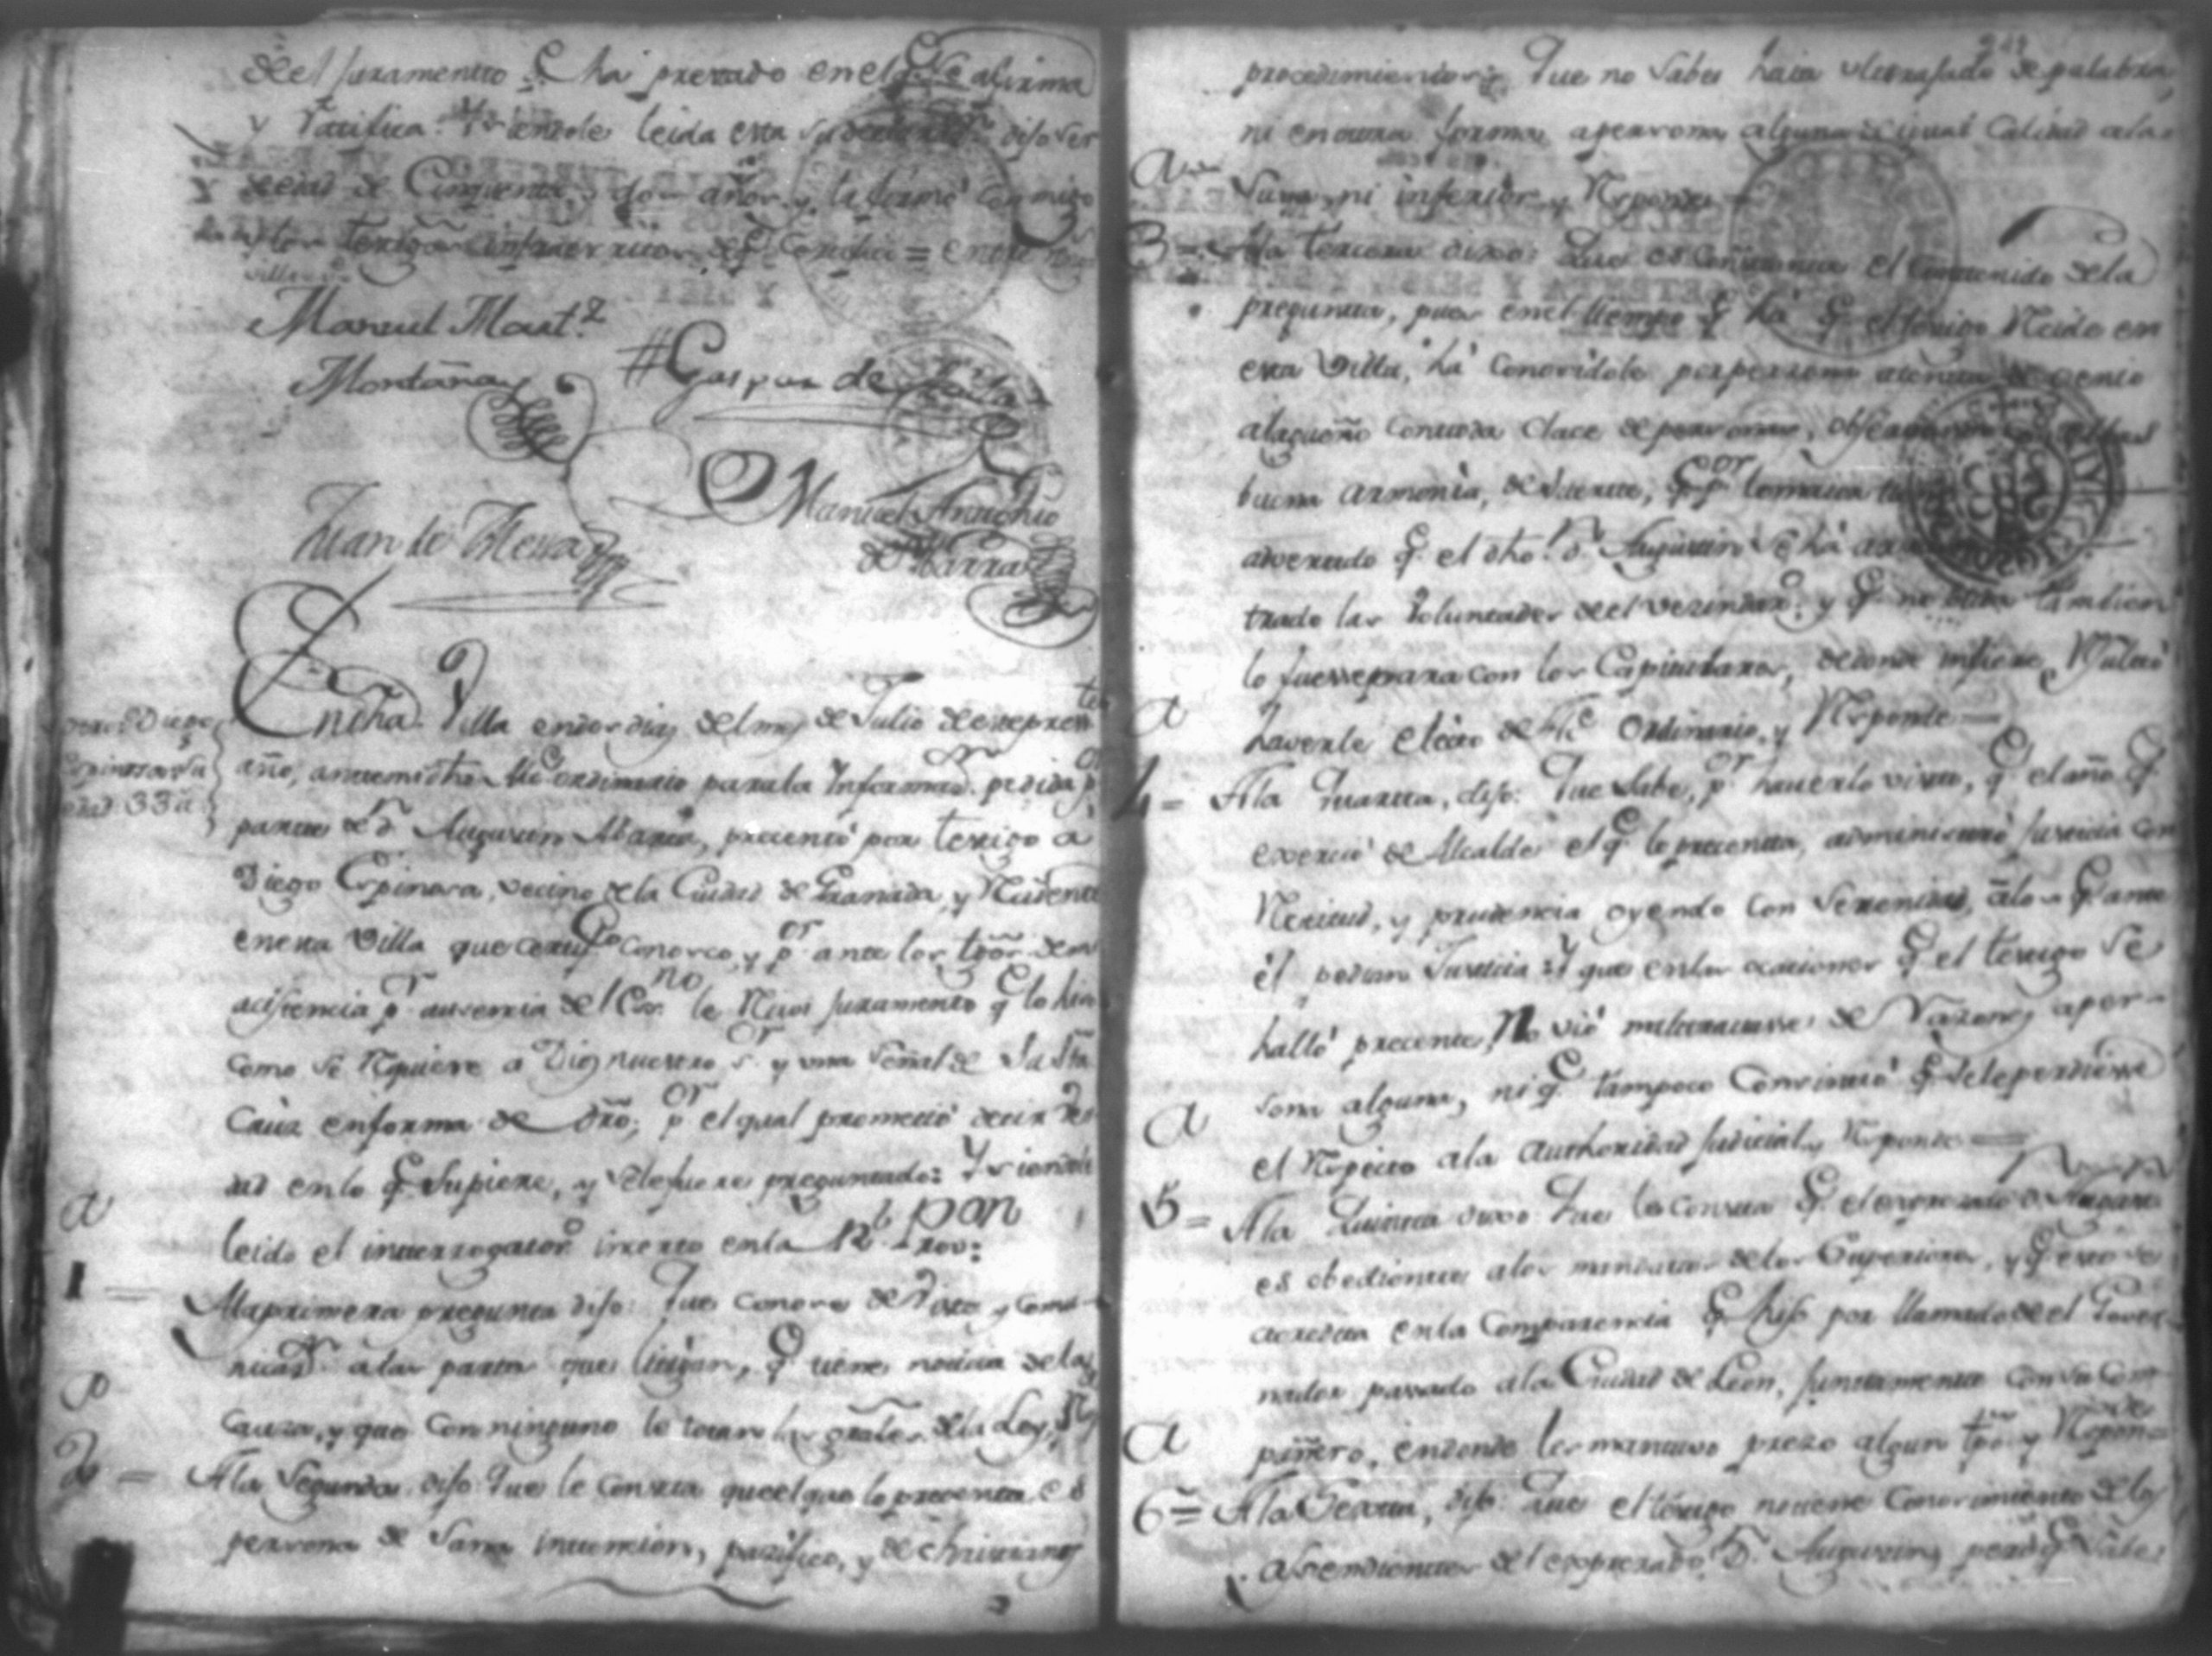 de el juramento q.e ha prestado en el q.e se afirma
y ratifica. Y siendole leida esta su declarac.n dijo ser
de edad de Cinquenta y dos años y la firmó conmigo
y los testigos infraescritos de q.e Consta = entre
Manuel Mart.z
Montaña
Gaspar de
Juan de Mena
Manuel Antonio
de Narra
En dha. Villa en dos dias del mes de Julio de este presen.te
año, ante mi dho. Alc.e ordinario para la Informas.on pedida p.or
parte de D.n Augustin Abarca, precentó por testigo a
Diego Espinosa, vecino de la Ciudad de Granada, y Recidente
en esta Villa que certif.co conosco, y p.or ante los tgõs de mi
acistencia p.r ausencia del Ess.no le Reciví juramento q.e lo hiso
como se Requiere a Dios nuestro s.or y una señal de Su Sta.
Cruz en forma de dro; p.or el qual prometió decir ver
dad en lo q.e Supiere, y se le fuere preguntado: Y siendole
leido el interrogator.o inserto en la R.l pon
a
1 = A la primera pregunta dijo: Que conose de Vista y comu-
nicas.n a las partes que litigan, q.e tiene noticia de la
Causa, y que con ninguno le tocan las grãles de la Ley, R
2 = A la Segunda dijo: Que le Consta que el que lo precenta es
persona de Sana intencion, pacifico, y de christianos
Diego
Espinosa su
edad 33 a.s
procedimientos: Que no Sabe haia ultrajado de palabra,
ni en otra forma a persona alguna de igual Calidad a la
Suya, ni inferior, y Responde
3 = A la tercera dixo: Que es Constante el Contenido de la
pregunta, pues en el tiempo q.e há q.e el testigo Recide en
esta Villa, há conocidole por persona atenta
alagueño con toda clace de personas, observando con ellas
buena armonia, de suerte, q.e p.or lo mismo
advertido q.e el dho. D.n Augustin se há
trado las Voluntades de el vecindar.o; y q.e tambien
lo fuesse para con los Capitulares, de donde infiere, Resultó
haverle electo de Alc.e Ordinario, y Responde =
4 = A la Quarta, dijo: Que Sabe, p.or haverlo visto, q.e el año q.e
exerció de Alcalde el q.e lo precenta, administró justicia con
Rectitud, y prudencia oyendo con Serenidad, a los q.e ante
él pedian Justicia: Y que en las ocaciones q.e el testigo Se
halló precente, No vió maltratasse de Razones a per-
sona alguna, ni q.e tampoco Consintió q.e se le perdiesse
el Respecto a la Authoridad judicial, y Responde =
5 = A la Quinta dixo: Que le Consta q.e el expresado D.n Augus.n
es obediente a los mandatos de los Superiores, y q.e esto se
acredita en la Comparencia q.e hiso por llamado de el Gover-
nador passado a la Ciudad de Leon, juntamente con su Com-
pañero, en donde los mantuvo prezo algun tpõ y Respon.de
6 = A la Sexta, dijo: Que el testigo no tiene Conocimiento de los
asendientes del expresado D.n Augustin, pero q.e Sabe